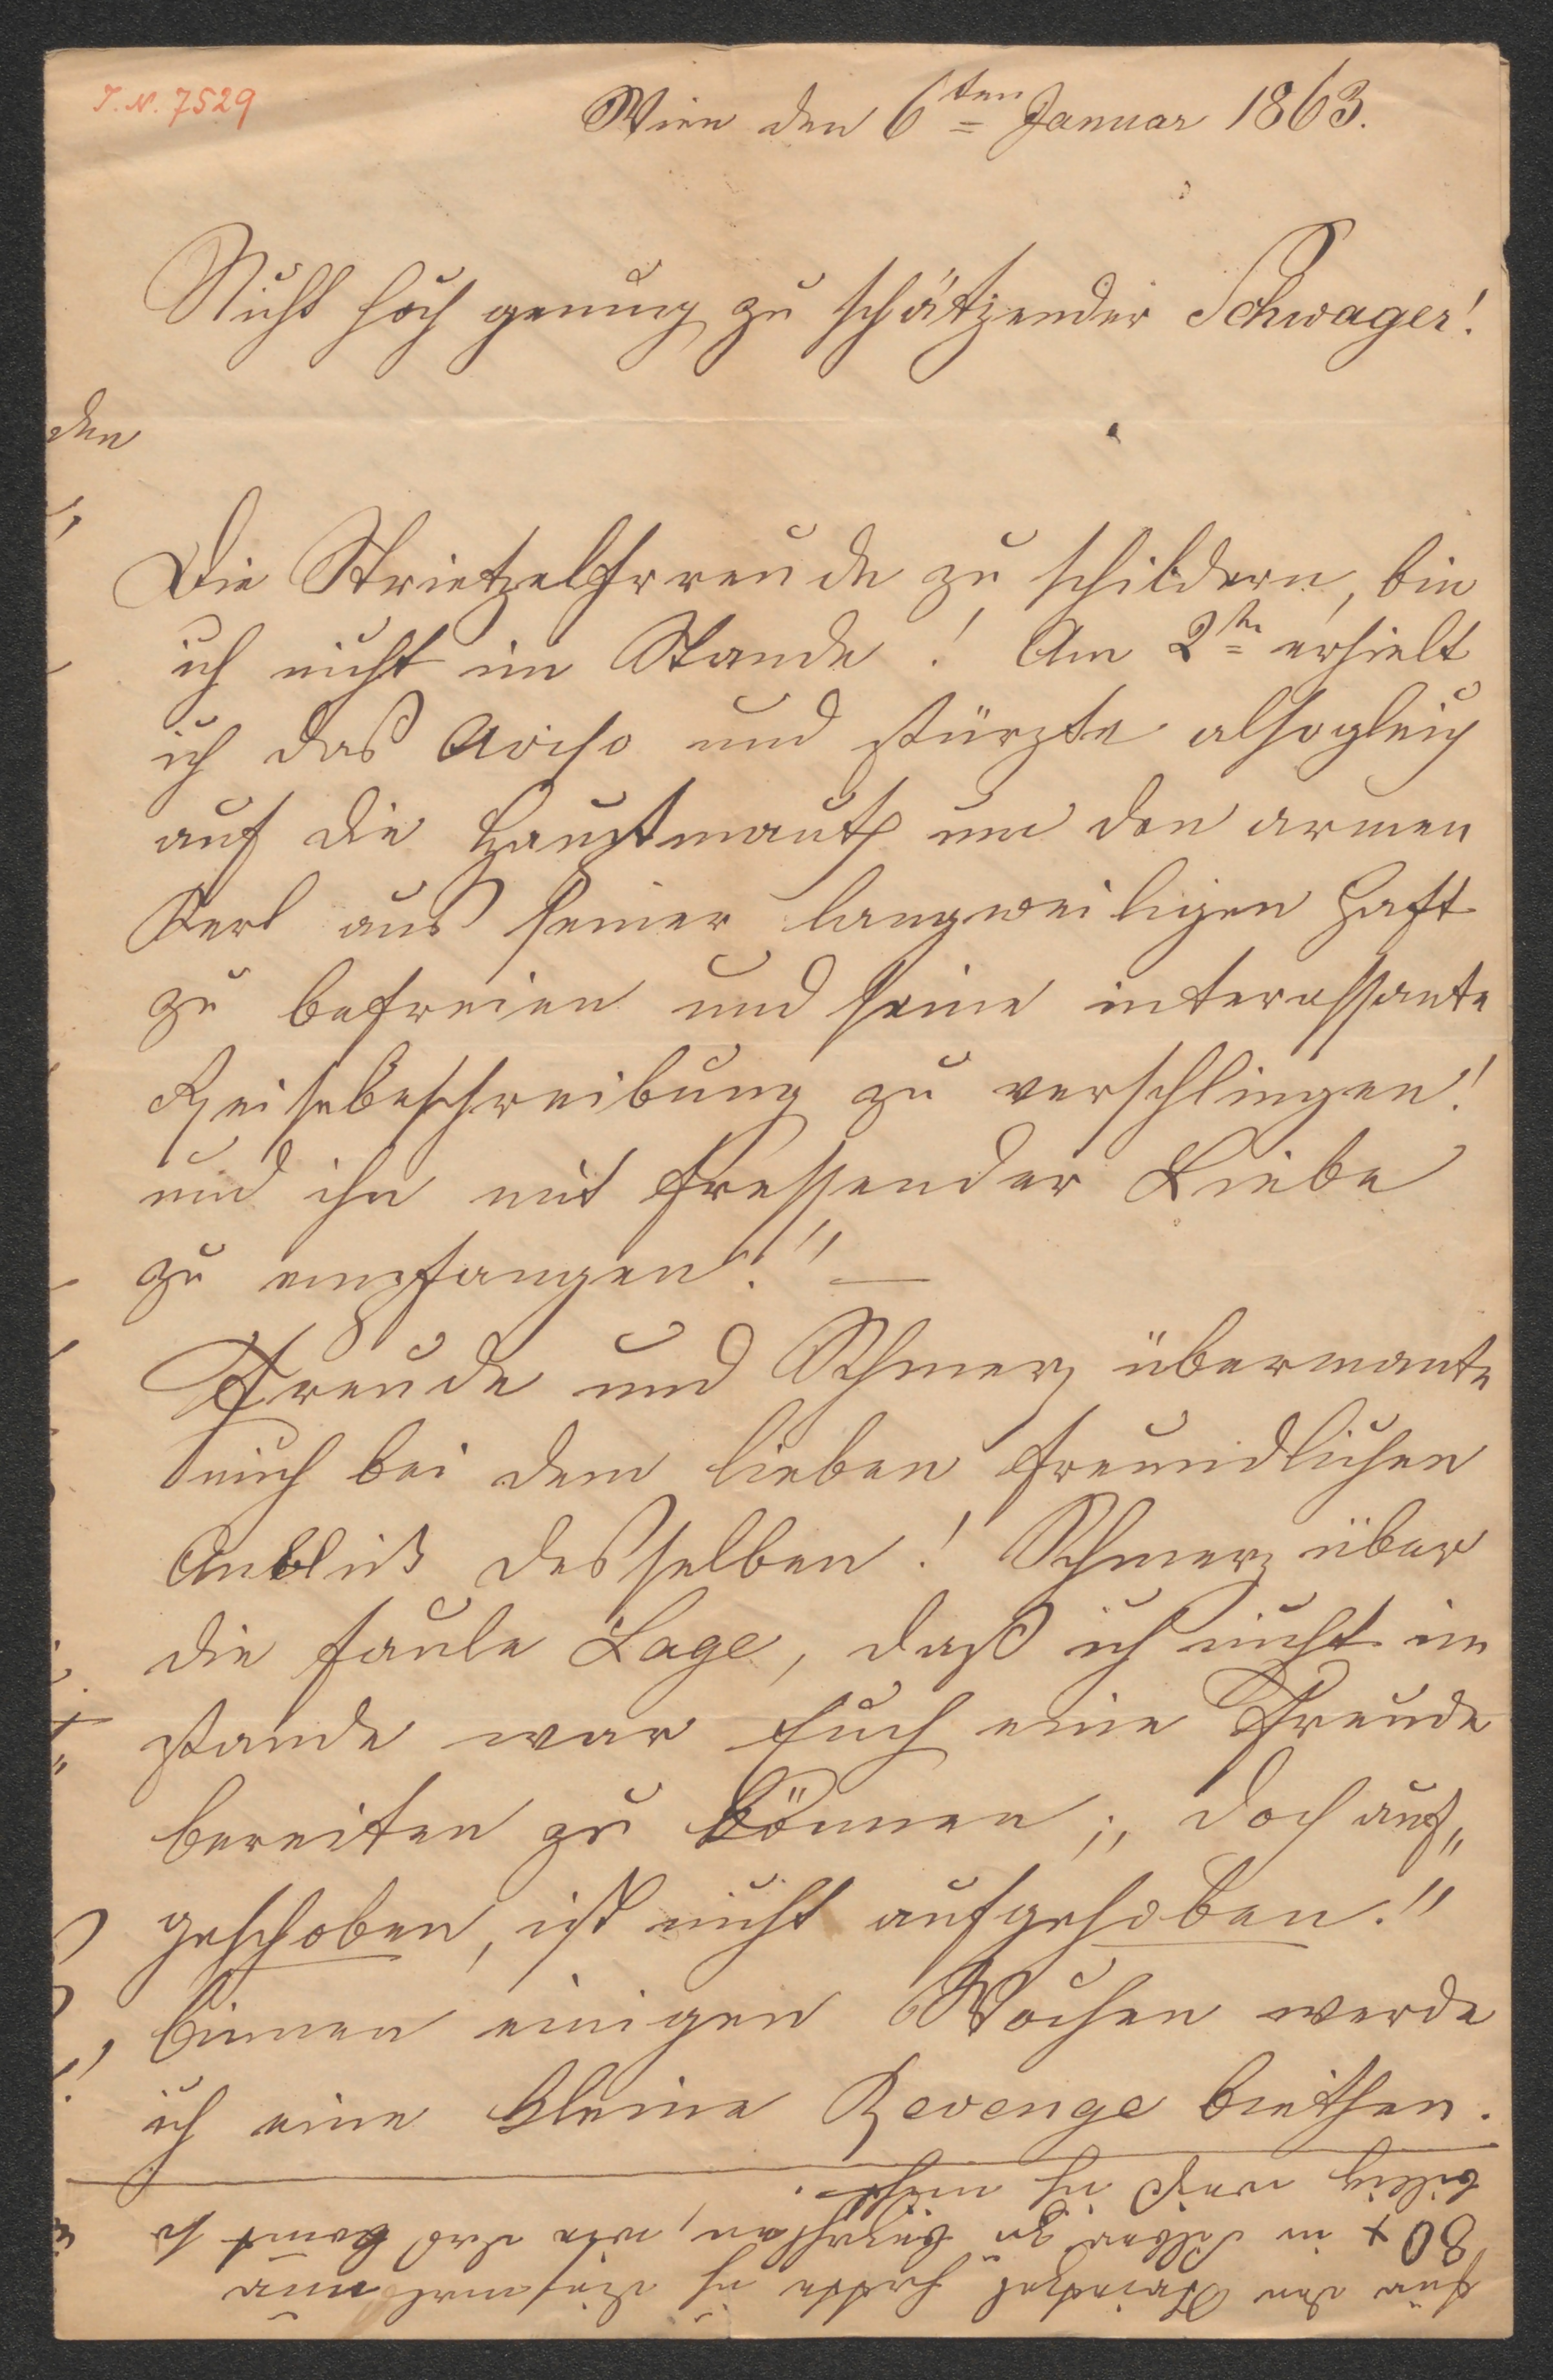 I. N. 7529
Wien den 6ten Januar 1863.
Nicht hoch genung zu schätzender Schwager!
den
Die Strietzelfreude zu schildern, bin
ich nicht im Stande! Am 2tn erhielt
ich das Aviso und stürzte alsogleich
auf die Hauptmauth um den armen
Kerl aus seiner langweiligen Haft
zu befreien und seine interessante
Reisebeschreibung zu verschlingen!
und ihn mit fressender Liebe
zu empfangen!" —
Freude und Schmerz übermante
mich bei dem lieben freundlichen
Anblick desselben! Schmerz über
die faule Lage, daß ich nicht im
stande war Euch eine Freude
bereiten zu können; „doch auf„
geschoben, ist nicht aufgehoben."
binnen einigen Wochen werde
ich eine kleine Revenge biethen.
für den Strietzel hatte ich dießmal nur
80 x in Silber zu bezahlen, wie das kommt so
billig weiß ich nicht.